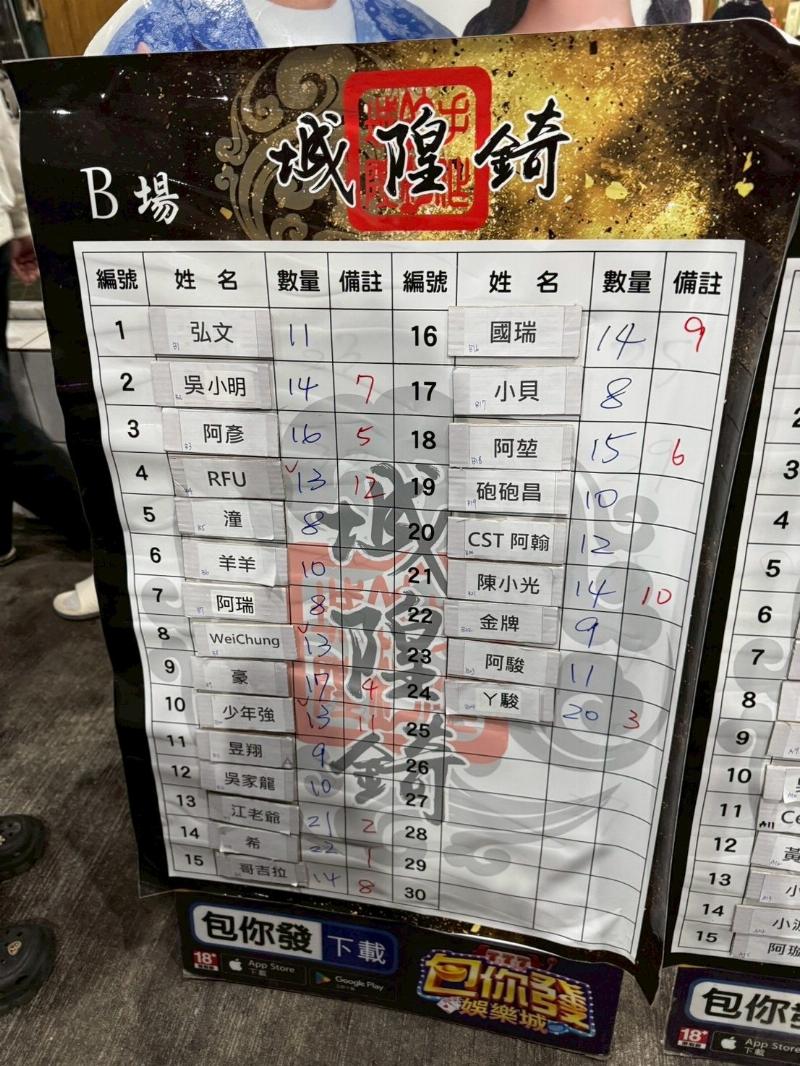 城隍錡
B場
編號 姓名 數量 備註 編號 姓名 數量 備註
1 弘文 11 16 國瑞 14 9
2 吳小明 14 7 17 小貝 8
3 阿彥 16 5 18 阿堃 15 6
4 RFU 13 12 19 砲砲昌 10
5 潼 8 20 CST 阿翰 12
6 羊羊 10 21 陳小光 14 10
7 阿瑞 8 22 金牌 9
8 WeiChung 13 23 阿駿 11
9 豪 17 4 24 丫駿 20 3
10 少年強 13 25
11 昱翔 9 26
12 吳家龍 10 27
13 江老爺 21 2 28
14 希 22 1 29
15 哥吉拉 14 8 30
城隍錡
包你發 下載
18+
App Store
下載
Google Play
777
包你發
娛樂城
2
3
4
5
6
7
8
9
10
11
12
13 小
14
15
包你發
18+
App Store
下載